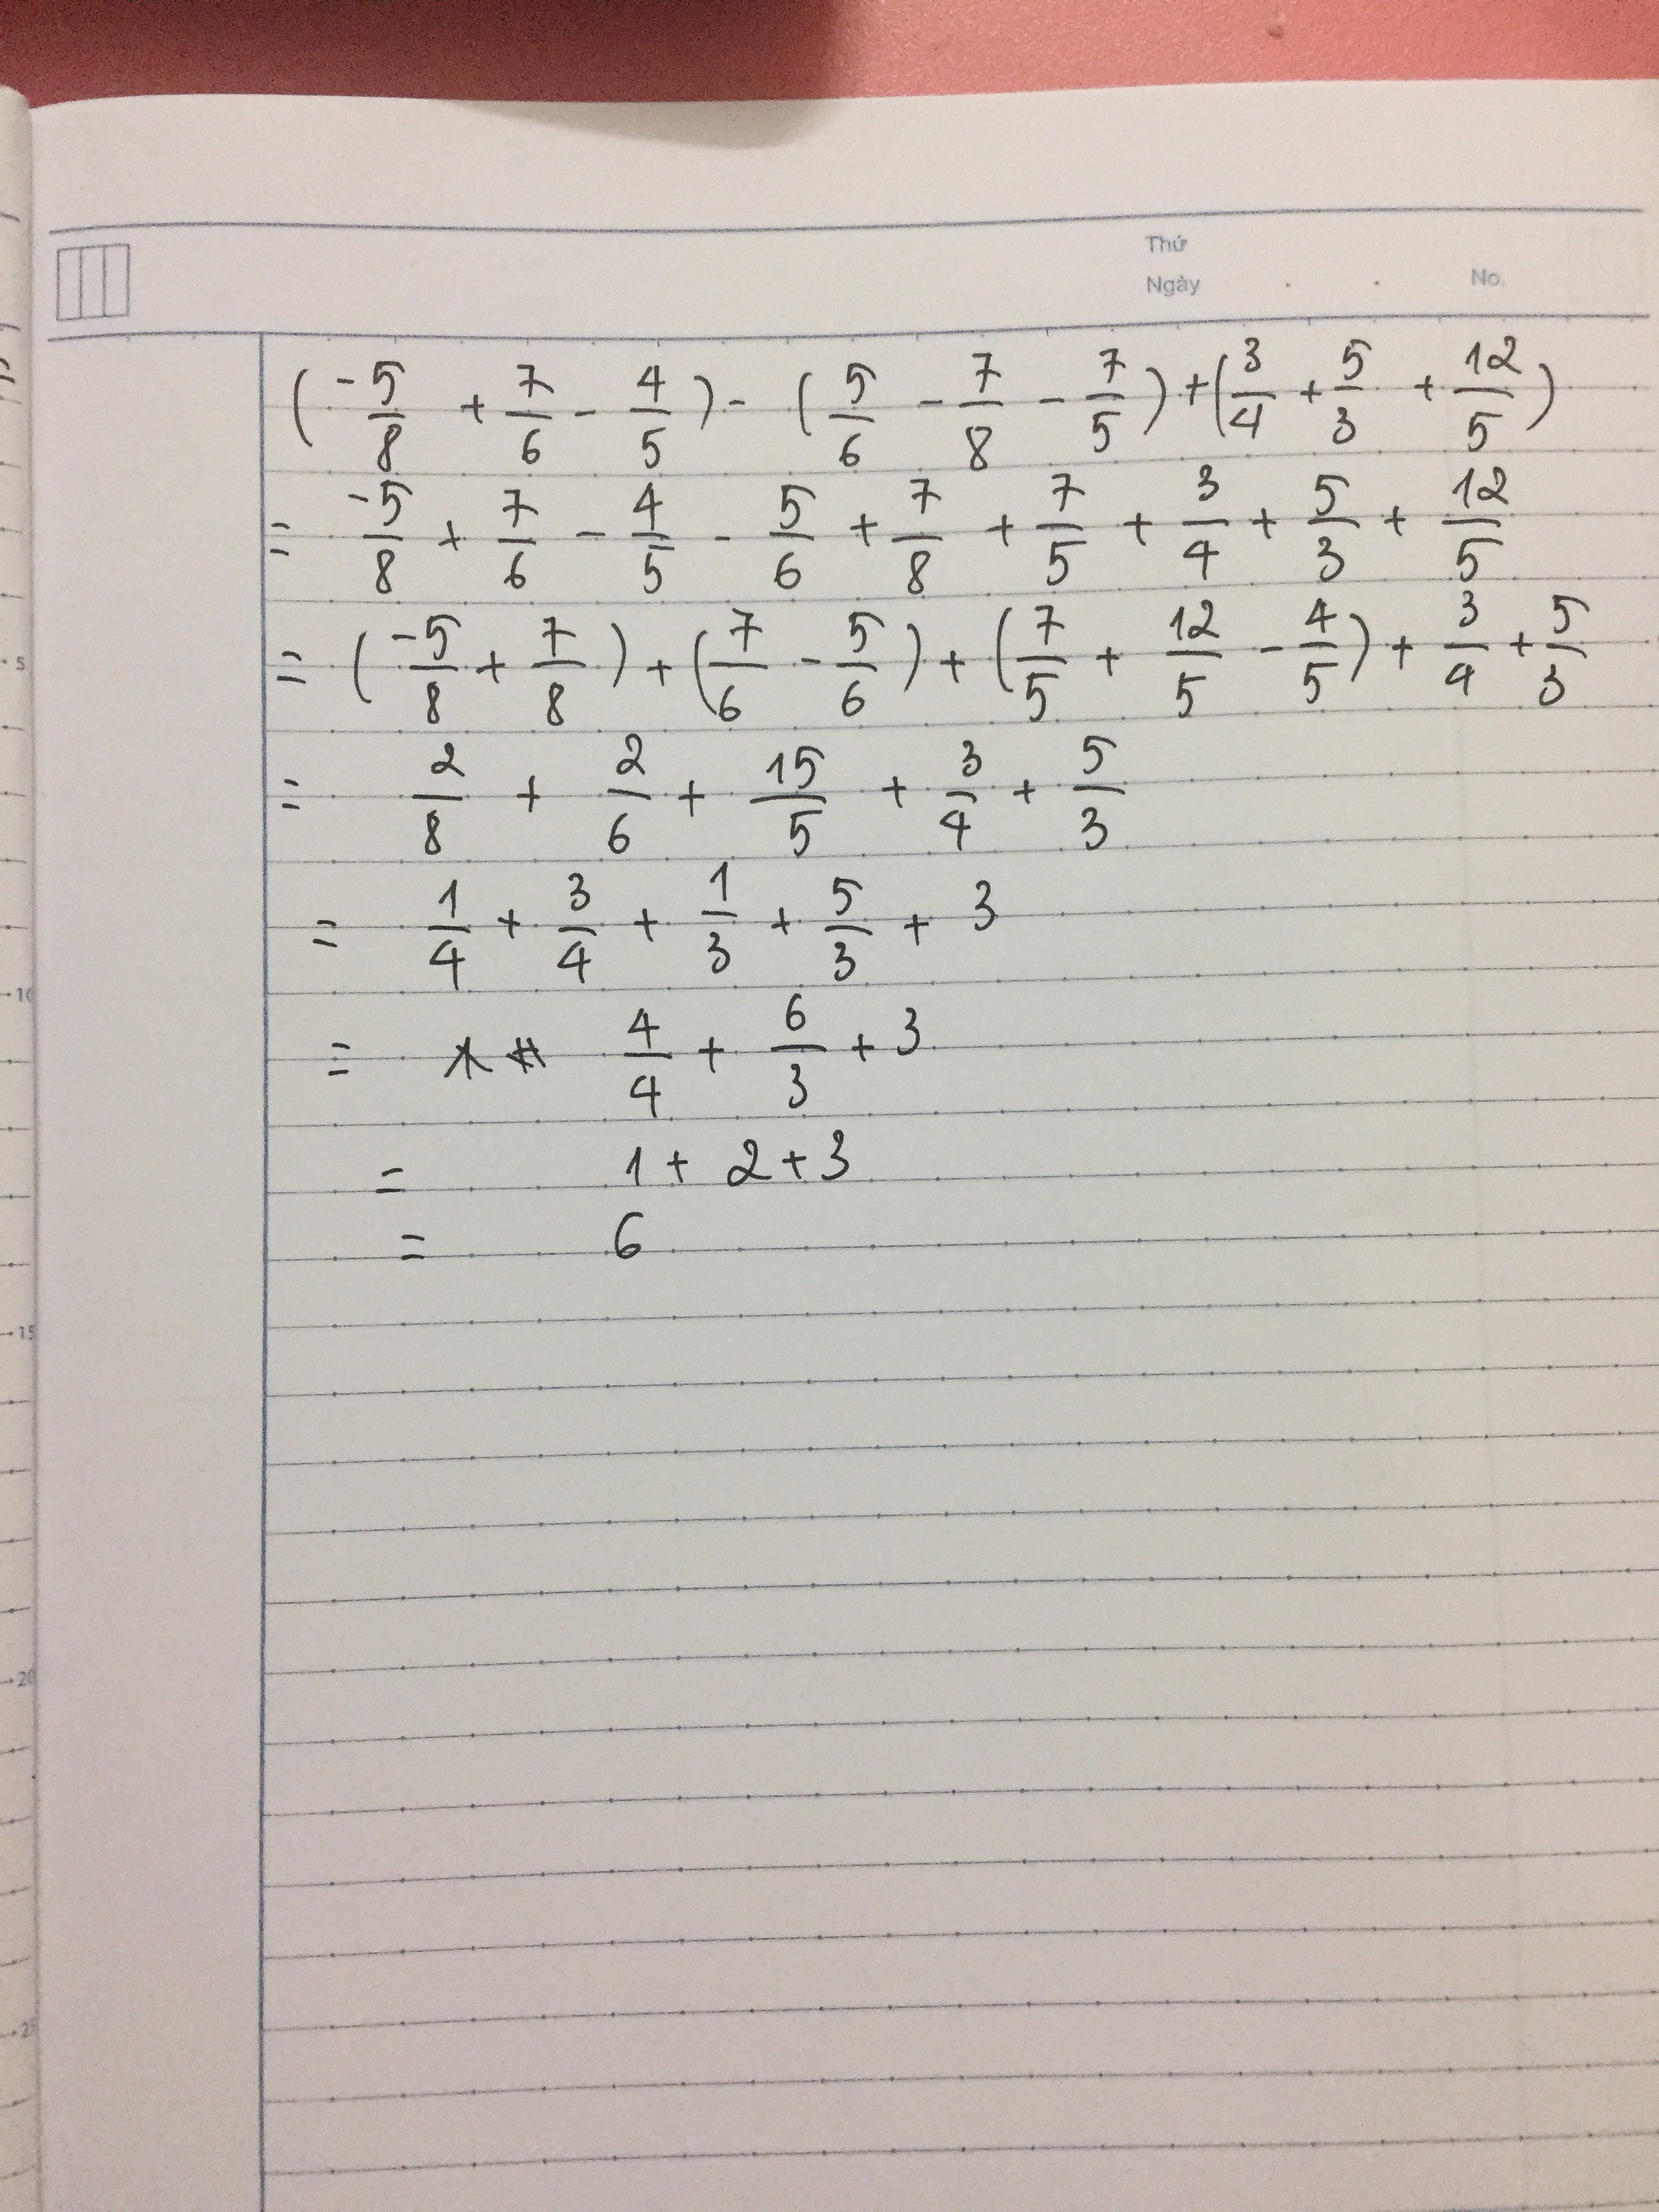 Thứ
Ngày . . No.
(-5/8 + 7/6 - 4/5) - (5/6 - 7/8 - 7/5) + (3/4 + 5/3 + 12/5)
= -5/8 + 7/6 - 4/5 - 5/6 + 7/8 + 7/5 + 3/4 + 5/3 + 12/5
= (-5/8 + 7/8) + (7/6 - 5/6) + (7/5 + 12/5 - 4/5) + 3/4 + 5/3
= 2/8 + 2/6 + 15/5 + 3/4 + 5/3
= 1/4 + 3/4 + 1/3 + 5/3 + 3
= 4/4 + 6/3 + 3
= 1 + 2 + 3
= 6
5
10
15
20